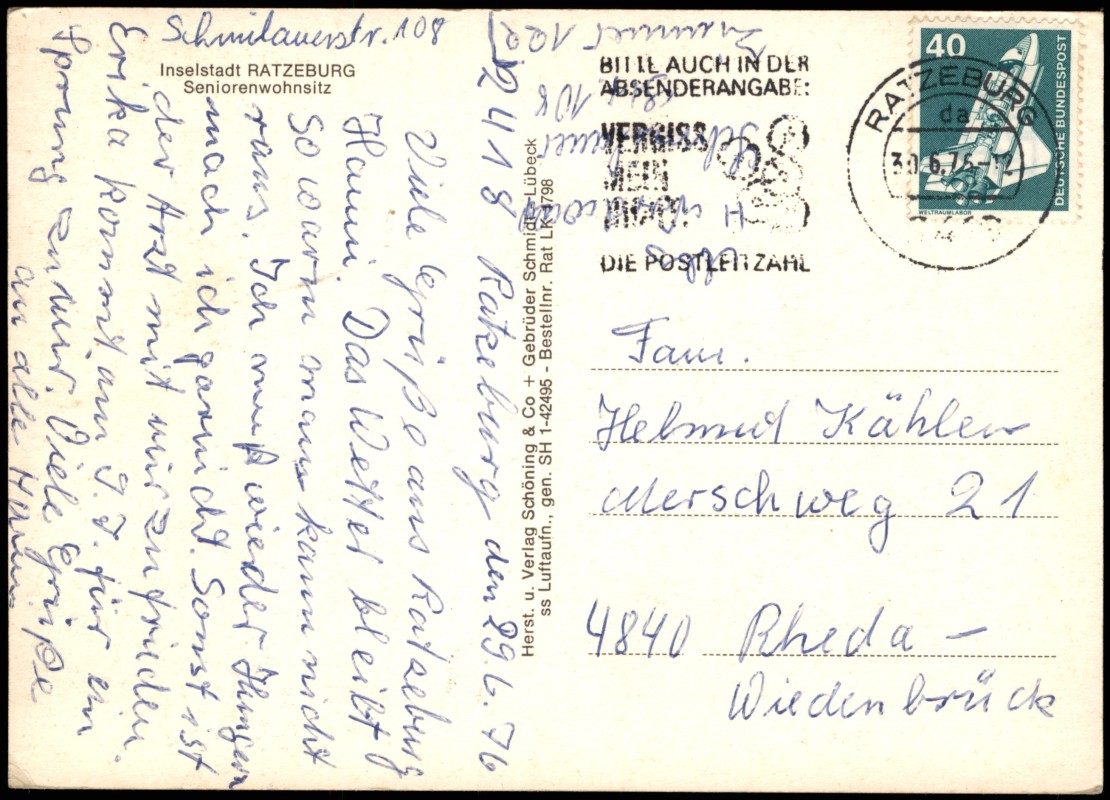 Schmilauerstr. 108
Inselstadt RATZEBURG
Seniorenwohnsitz
2418 Ratzeburg den 29.6.76
Viele Grüße aus Ratzeburg
Hanni. Das Wetter bleibt
So warm man kann nicht
raus. Ich muß wieder Hungern
mach ich garnicht. Sonst ist
der Arzt mit mir zufrieden.
Erika kommt am 9.7. für ein
Sprung zu mir. Viele Grüße
an alle
Herst. u. Verlag Schöning & Co + Gebrüder Schmidt - Lübeck
ss Luftaufn., gen. SH 1-42495 - Bestellnr. Rat LK 4798
Zimmer 122
BITTE AUCH IN DER
ABSENDERANGABE:
VERGISS
MEIN
NICHT
DIE POSTLEITZAHL
RATZEBURG
da
30.6.76-12
40
DEUTSCHE BUNDESPOST
WELTRAUMLABOR
Fam.
Helmut Kähler
Merschweg 21
4840 Rheda-
Wiedenbrück